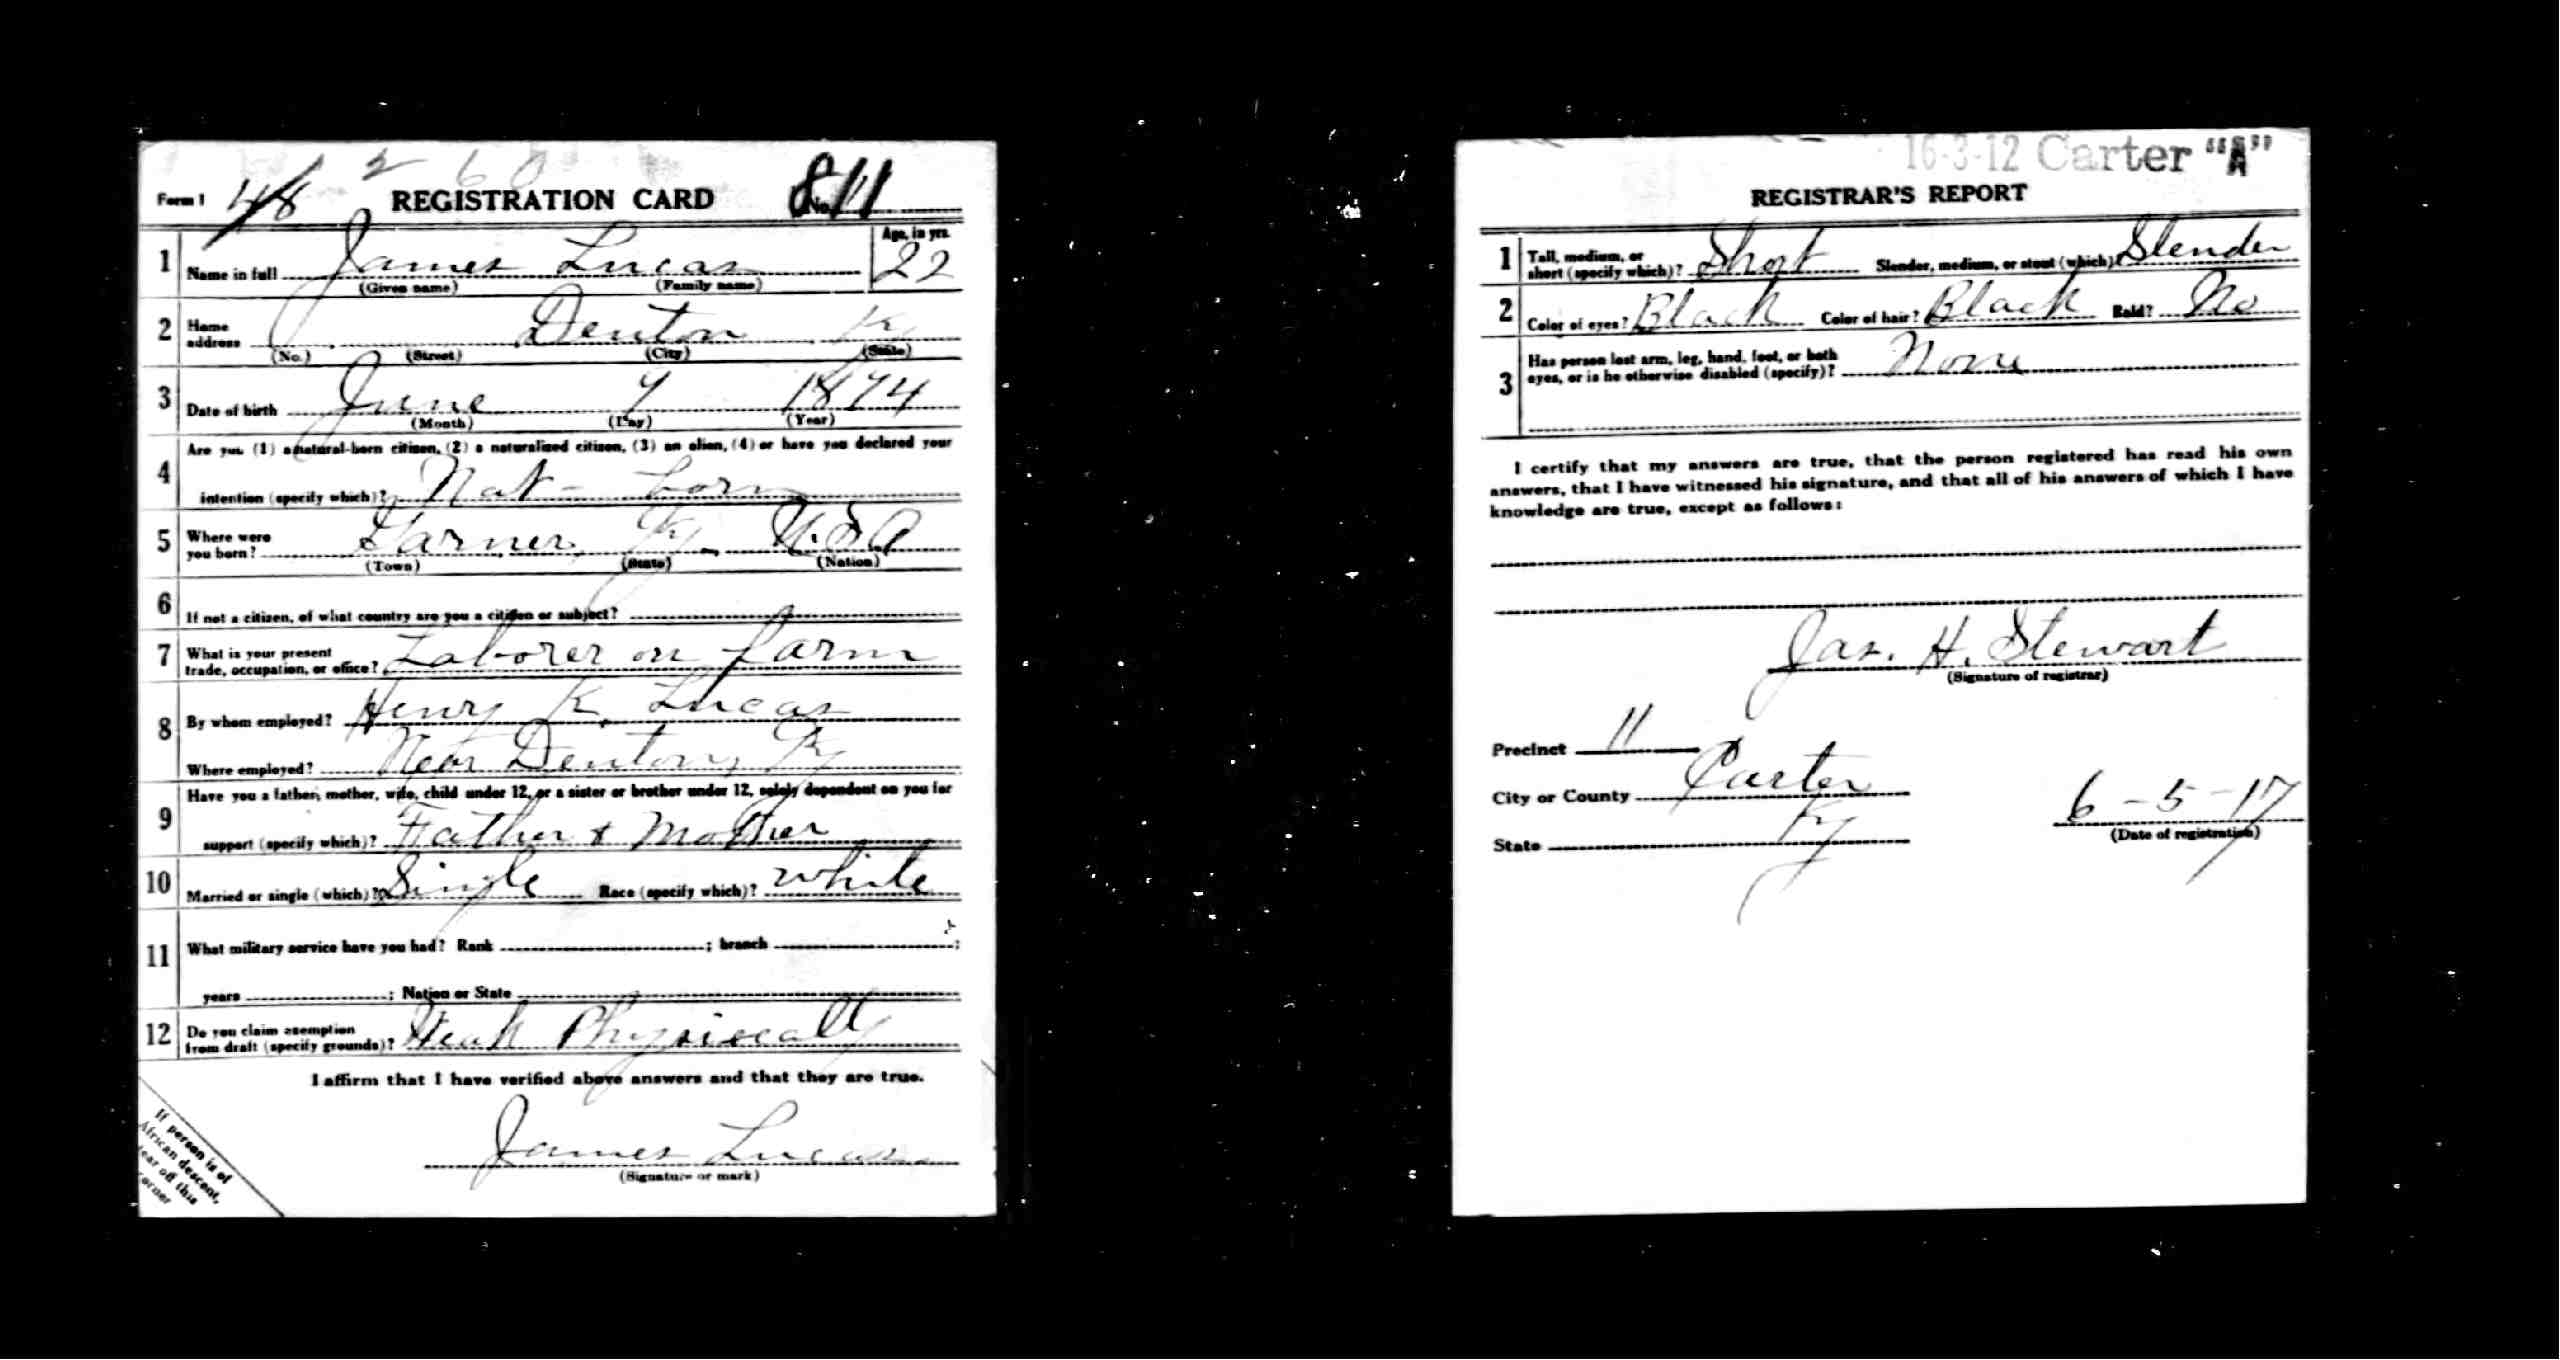 48 2 6 0
Form 1 REGISTRATION CARD No. 811
1 Name in full James Lucas Age, in yrs. 22
(Given name) (Family name)
2 Home address Denton Ky
(No.) (Street) (City) (State)
3 Date of birth June 7 1874
(Month) (Day) (Year)
4 Are you (1) a natural-born citizen, (2) a naturalized citizen, (3) an alien, (4) or have you declared your
intention (specify which)? Nat- born
5 Where were you born? Garner, Ky. U.S.A
(Town) (State) (Nation)
6 If not a citizen, of what country are you a citizen or subject?
7 What is your present trade, occupation, or office? Laborer on farm
8 By whom employed? Henry K. Lucas
Where employed? Near Denton, Ky
9 Have you a father, mother, wife, child under 12, or a sister or brother under 12, solely dependent on you for
support (specify which)? Father & Mother
10 Married or single (which)? Single Race (specify which)? White
11 What military service have you had? Rank ; branch ;
years ; Nation or State
12 Do you claim exemption from draft (specify grounds)? Weak Physically
I affirm that I have verified above answers and that they are true.
James Lucas
(Signature or mark)
If person is of
African descent,
tear off this
corner
16-3-12 Carter "A"
REGISTRAR'S REPORT
1 Tall, medium, or short (specify which)? Short Slender, medium, or stout (which)? Slender
2 Color of eyes? Black Color of hair? Black Bald? No
3 Has person lost arm, leg, hand, foot, or both
eyes, or is he otherwise disabled (specify)? None
I certify that my answers are true, that the person registered has read his own
answers, that I have witnessed his signature, and that all of his answers of which I have
knowledge are true, except as follows:
Jas. H. Stewart
(Signature of registrar)
Precinct 11
City or County Carter
State Ky 6-5-17
(Date of registration)